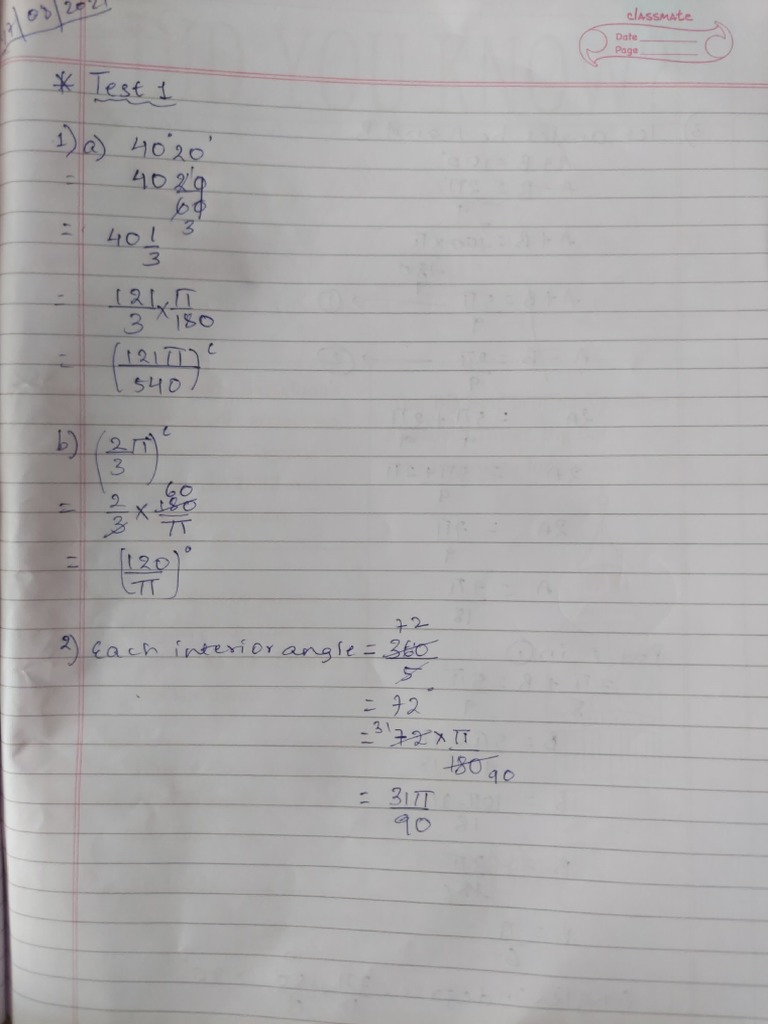 /08/2021
classmate
Date
Page
* Test 1
1) a) 40°20'
= 40 20/60 1 3
= 40 1/3
= 121/3 × π/180
= (121π/540)ᶜ
b) (2π/3)ᶜ
= 2/3 × 180/π 60
= (120/π)°
2) Each interior angle = 360/5 72
= 72°
= 31 72 × π/180 90
= 31π/90